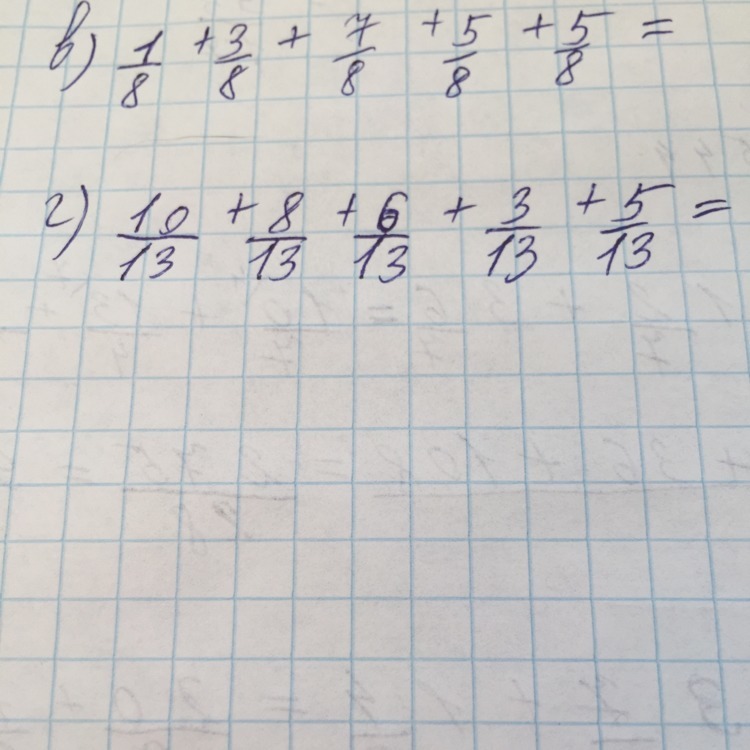 в) 1/8 + 3/8 + 7/8 + 5/8 + 5/8 =
г) 10/13 + 8/13 + 6/13 + 3/13 + 5/13 =